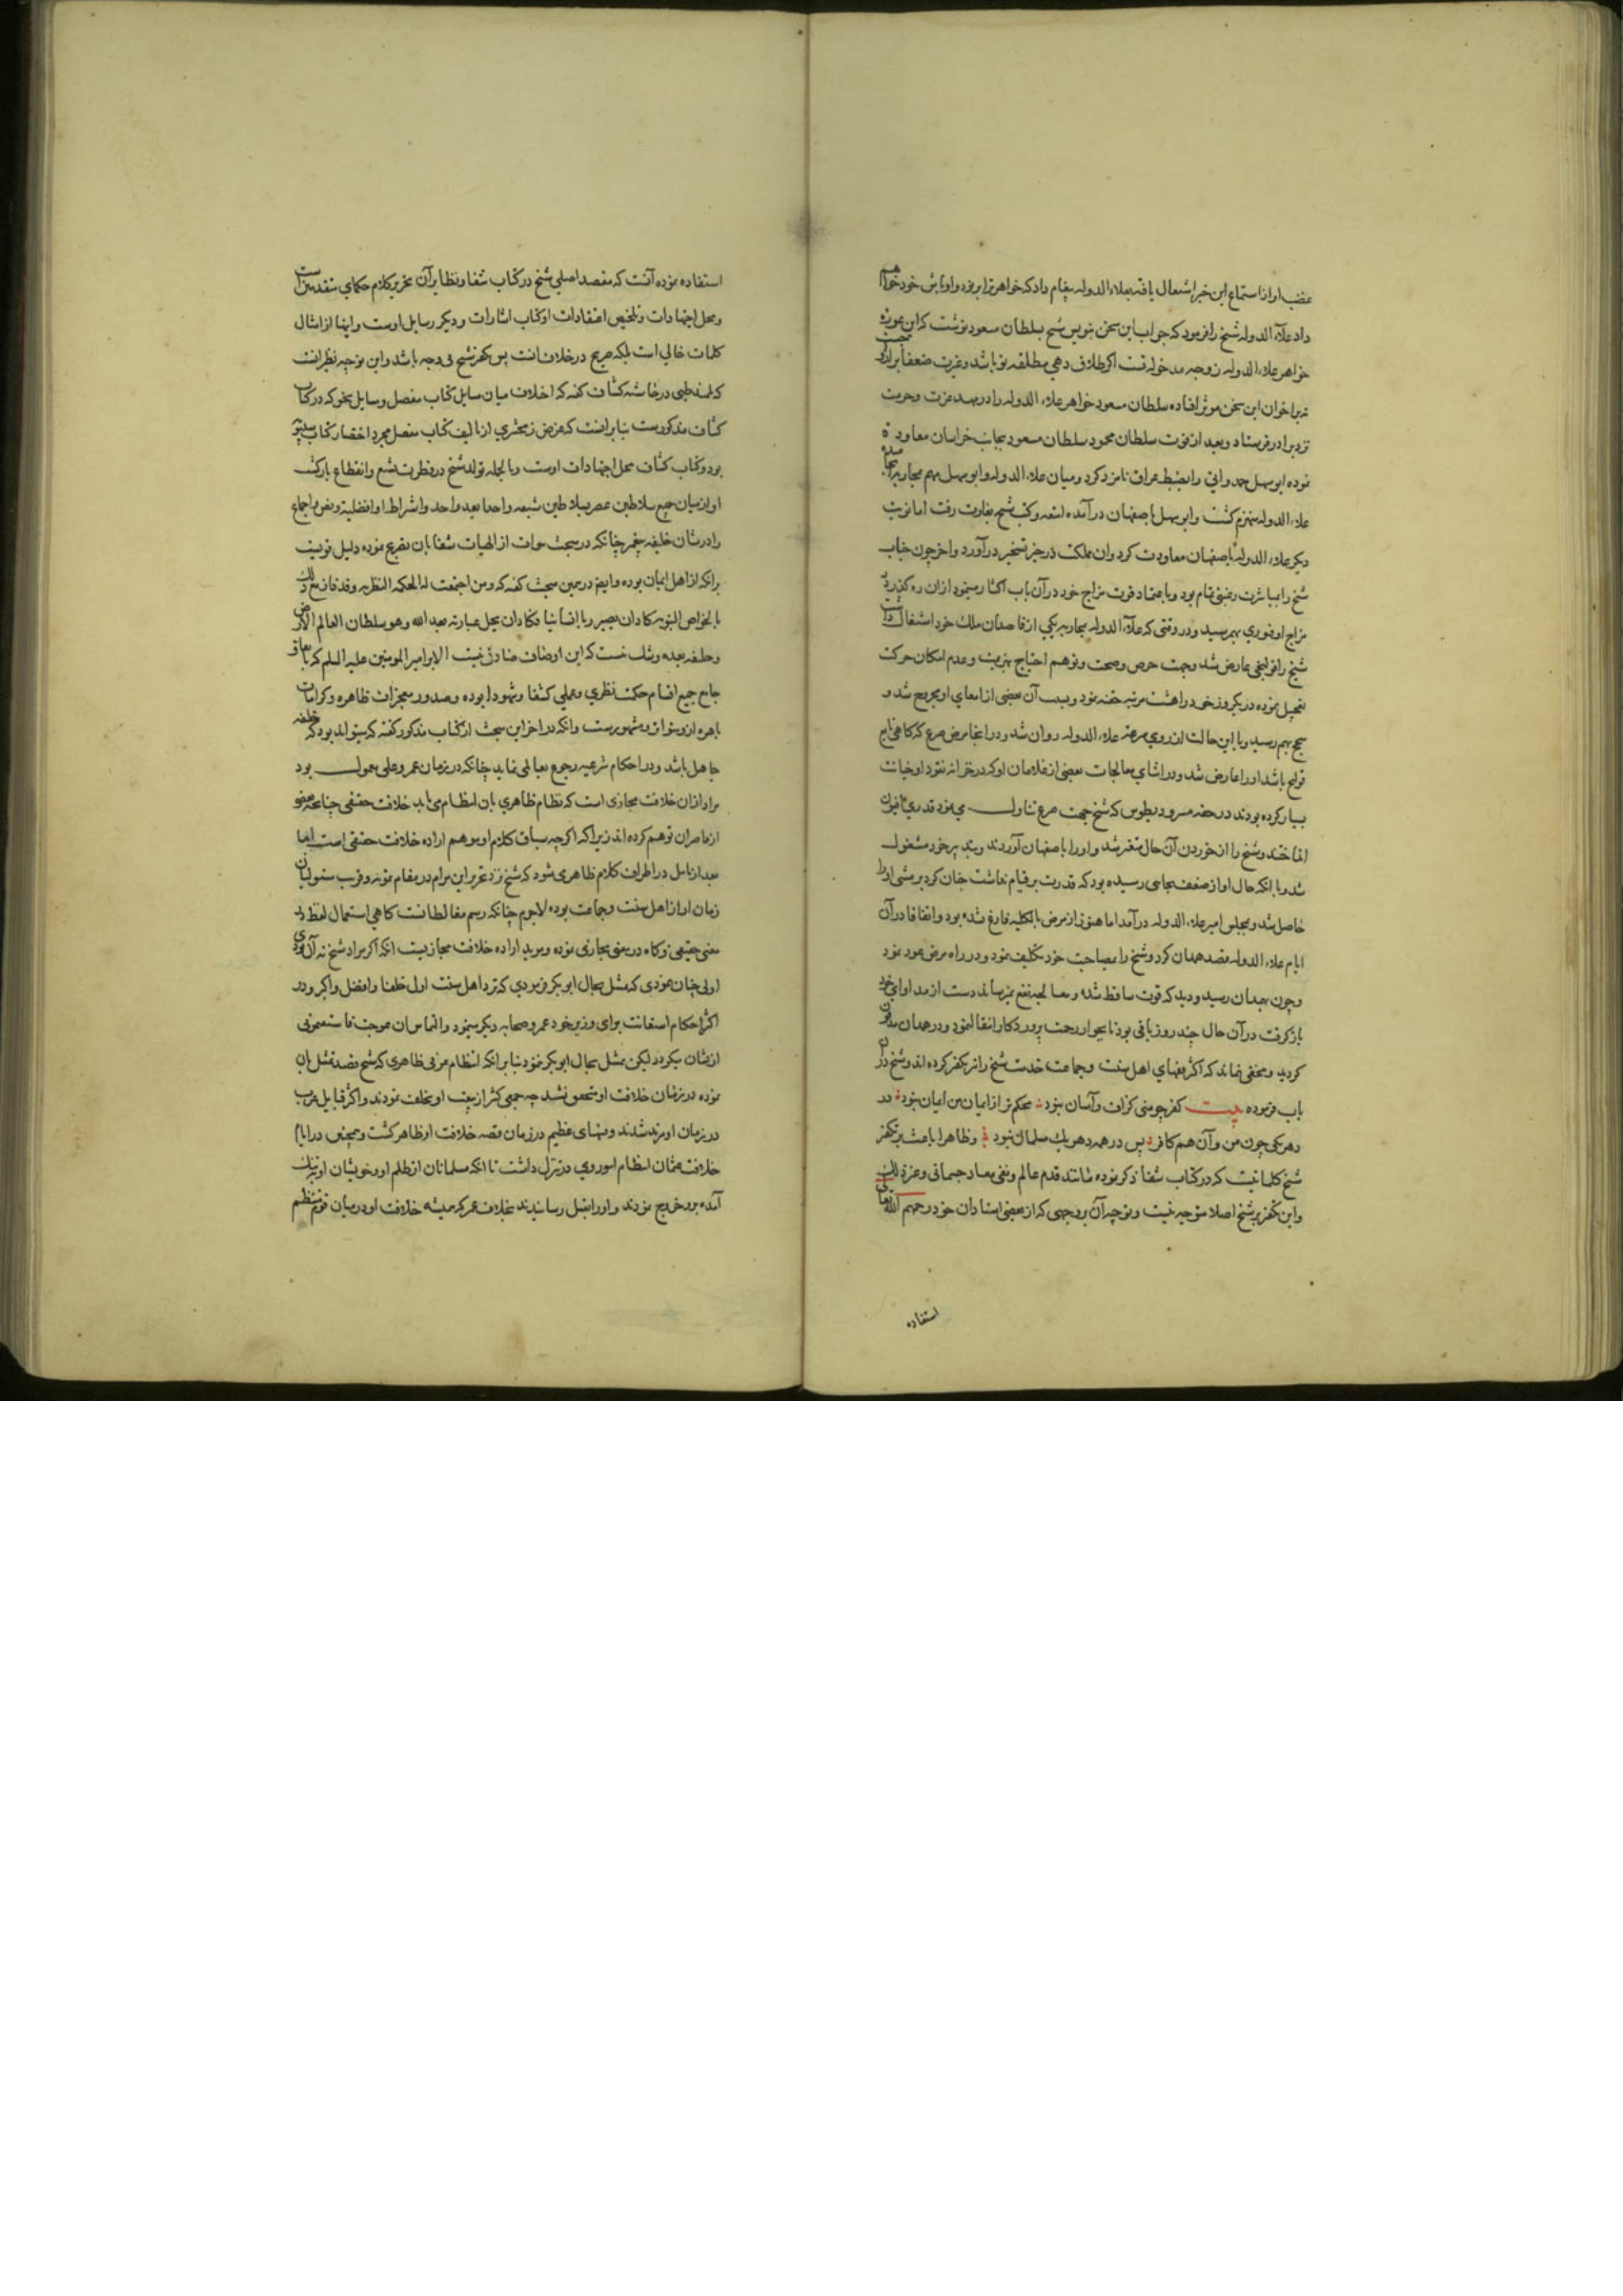 غضب او از استماع این خبر اشتعال یافته بعلاء الدوله پیغام داد که خواهر ترا بر نود و اوباش خود خواهم
داد علاء الدوله شیخ را فرمود که جواب این سخن بنویس شیخ بسلطان مسعود نوشت که این عورت
خواهر علاء الدوله زوجه مدخوله تست اگر طلاق دهی مطلقه تو باشد و غیرت ضعفا بر ازواجست
نه بر اخوان این سخن موثر افتاده سلطان مسعود خواهر علاء الدوله را در مهد عزت و حرمت
نزد برادر فرستاد و بعد از فوت سلطان محمود سلطان مسعود بجانب خراسان معاودة
نموده ابو سهل حمدوانی را بضبط عراق نامزد کرد و میان علاء الدوله و ابو سهل مهم بمحاربه انجامیده
علاء الدوله منهزم گشت و ابو سهل باصفهان در آمده امتعه و کتب شیخ بغارت رفت اما نوبت
دیگر علاء الدوله باصفهان معاودت کرد و آن مملکت در حیز تسخیر در آورد و آخر چون جناب
شیخ را بمباشرت رغبتی تمام بود و باعتماد قوت مزاج خود در آن باب اکثار مینمود از ان رهگذر در
مزاج او فتوری بهم رسید و در وقتی که علاء الدوله بمحاربه یکی از قاصدان ملک خود اشتغال داشت
شیخ را قولنجی عارض شد و بجهت حرص و صحت و توهم احتیاج بهزیمت و عدم امکان حرکت
تعجیل نموده در یکروز خود را هشت مرتبه حقنه نمود و بسبب آن بعضی از امعای او مجروح شد و
سحج بهم رسید و با این حالت از روی سرعت علاء الدوله روان شد و در انجا مرض صرع که گاهی تابع
قولنج باشد او را عارض شد و در اثنای معالجات بعضی از غلامان او که در خزانه نقود او خیانت
بسیار کرده بودند در حقنه مثرودیطوس که شیخ جهت صرع تناول می نمود قدری افیون
انداختند و شیخ را از خوردن آن حال متغیر شد و او را باصفهان آوردند و بتدبیر خود مشغول
شد و با انکه حال او از ضعف بجایی رسیده بود که قدرت بر قیام نداشت چنان کرد بر مشی او را
حاصل شد و بمجلس امیر علاء الدوله در آمد اما هنوز از مرض بالکلیه فارغ نشده بود و اتفاقا در آن
ایام علاء الدوله قصد همدان کرد و شیخ را بمصاحبت خود تکلیف نمود و در راه مرض عود نمود
و چون بهمدان رسید و دید که قوت ساقط شده و معالجه نفع نمیرساند دست از مداوای خود
باز گرفت در آن حال چند روز باقی بود تا بجوار رحمت پروردگار انتقال نمود و در همدان مدفون
گردید و مخفی نماند که اکثر فقهای اهل سنت و جماعت خدمت شیخ را نیز تکفیر کرده اند و شیخ در آن
باب فرموده بیت کفر چو منی گزاف و آسان نبود محکم تر از ایمان من ایمان نبود در
دهر یکی چون من و آن هم کافر پس در همه دهر یک مسلمان نبود و ظاهرا باعث بر تکفیر
شیخ کلماتیست که در کتاب شفا ذکر نموده مانند قدم عالم و نفی معاد جسمانی و غیر ذلک
و این تکفیر بر شیخ اصلا متوجه نیست و توجیه آن بروجهی که از بعضی استادان خود رحمهم الله تعالی
استفاده
استفاده نموده آنست که مقصد اصلی شیخ در کتاب شفا و نظایر آن تحریر کلام حکمای متقدمین است
و محل اجتهادات و تلخیص اعتقادات او کتاب اشارات و دیگر رسایل اوست و اینها از امثال
کلمات خالی است بلکه صریح در خلاف آنست پس تکفیر شیخ بی وجه باشد و این توجیه نظیر انست
که علامه طیبی در حاشیه کشاف گفته که اختلاف میان مسایل کتاب مفصل و مسایل نحو که در کتاب
کشاف مذکورست بنابر انست که غرض زمخشری از تالیف کتاب مفصل مجرد اختصار کتاب سیبویه
بود و کتاب کشاف محل اجتهادات اوست و بالجمله تولد شیخ در فطرت تشیع و انقطاع بارگشت
او از میان جمیع سلاطین عصر بسلاطین شیعه واحدا بعد واحد و اشتراط او افضلیت و نص و اجماع
را در شان خلیفه پیغمبر چنانکه در مبحث نبوات از الهیات شفا بان تصریح نموده دلیل قویست
برانکه از اهل ایمان بوده و ایضا در همین مبحث گفته که و من اجتمعت له الحکمة النظریه و قد فاز مع ذلک
بالخواص النبویه کاد ان یصیر ربا انسانیا و کاد ان یحل عبادته بعد الله و هو سلطان العالم الارض
و خلیفته بعده و شک نیست که این اوصاف صادق نیست الا بر امیر المومنین علیه السلام که باتفاق
جامع جمیع اقسام حکمت نظری و عملی کشفا و شهودا بوده و صدور معجزات ظاهره و کرامات
باهره از و متواتر و مشهورست و انکه در اخر این مبحث از کتاب مذکور گفته که میتواند بود که خلیفه
جاهل باشد و در احکام شرعیه رجوع بعالمی نماید چنانکه در زمان عمر و علی معمول بود
مراد از ان خلافت مجازی است که نظام ظاهری بان انتظام می یابد خلافت حقیقی چنانچه بعضی
از قاصران توهم کرده اند زیرا که اگرچه سیاق کلام او موهم اراده خلافت حقیقی است اما
بعد از تامل در اطراف کلام ظاهر می شود که شیخ نزد تحریر این مرام در مقام تمویه و فریب سنیان
زمان او از اهل سنت و جماعت بوده لاجرم چنانکه رسم مغالطانست گاهی استعمال لفظ در
معنی حقیقی و گاه در معنی مجازی نموده و موید اراده خلافت مجازیست انکه اگر مراد شیخ نه آن بودی
اولی چنان نمودی که تمثل بحال ابو بکر فرمودی که نزد اهل سنت اول خلفا و افضل و اکبر و در
اکثر احکام استعانت برای وزیر خود عمر و صحابه دیگر مینمود و التماس ان اعوججت فاستقیمونی
ازیشان میکرد لیکن تمثل بحال ابو بکر ننمود بنا برانکه انتظام عرفی ظاهری که شیخ قصد تمثل بان
نموده در زمان خلافت او متحقق نشد چه جمعی کثیر از بیعت او تخلف نمودند و اکثر قبایل عرب
در زمان او مرتد شدند و فتنهای عظیم در زمان قصه خلافت او ظاهر گشت و همچنین در ایام
خلافت عثمان انتظام امور روی در تنزل داشت تا انکه مسلمانان از ظلم او و خویشان او بتنگ
آمده برو خروج نمودند و او را بقتل رسانیدند بخلاف عمر که همیشه خلافت او در میان قوم منتظم